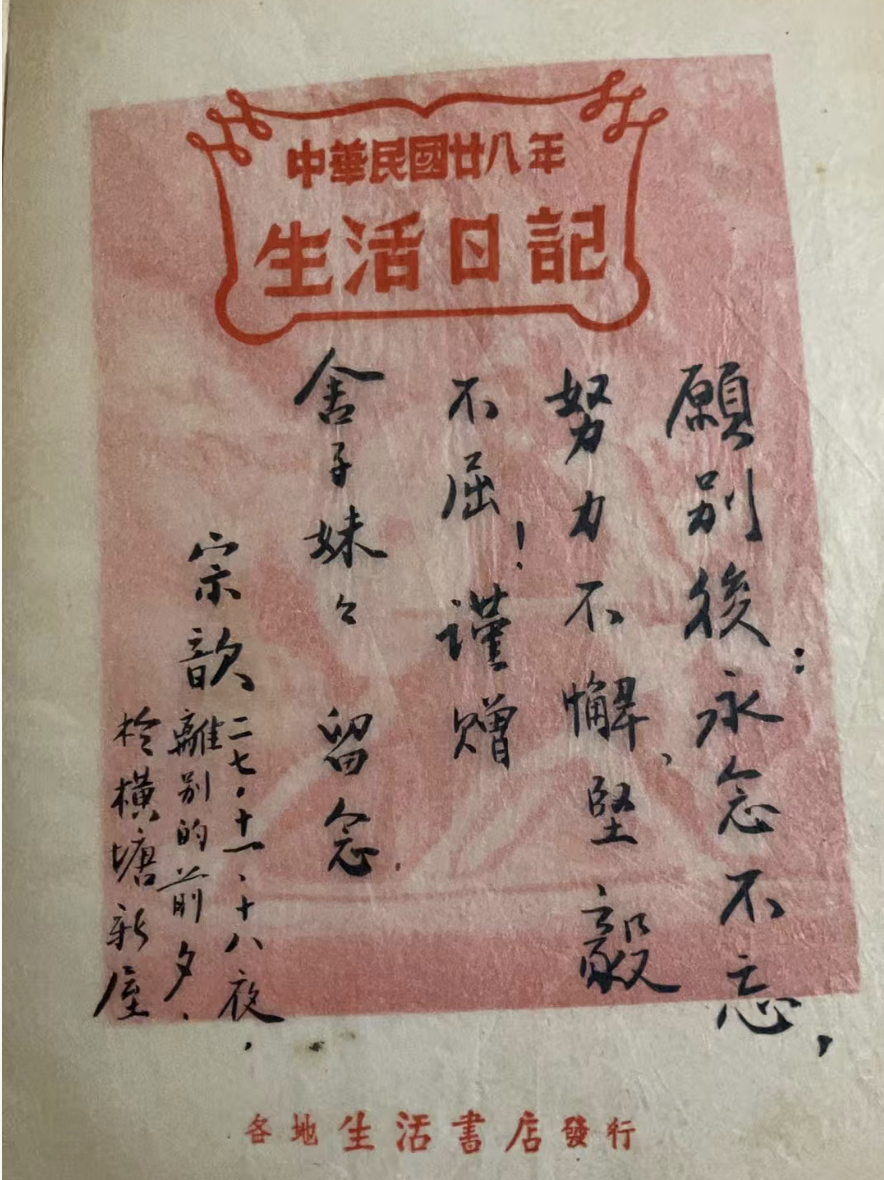 中華民國廿八年
生活日記
願别後：永念不忘，
努力不懈、堅毅
不屈！謹贈
舍予妹々 留念.
宗歆
二七。十一、十八夜，
離别的前夕.
於橫塘新屋
各地生活書店發行